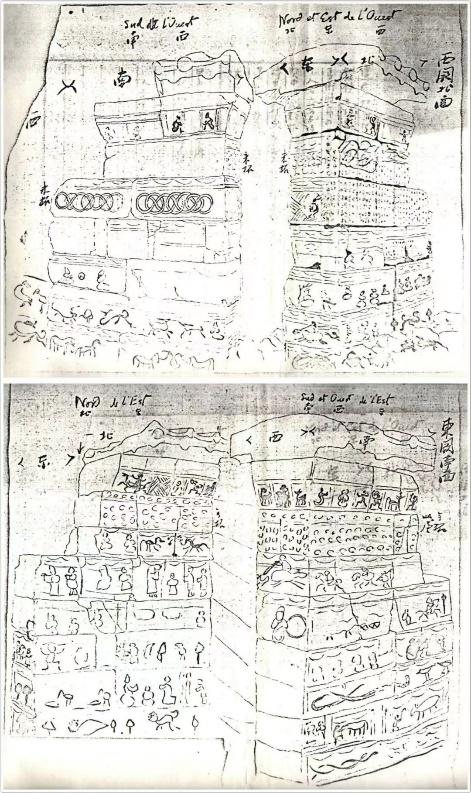 Sud de l'Ouest
南 西
Nord et Est de l'Ouest
北 东 西
西闕北面
南
< 东 >< 北
西
未拓
未拓
未拓
Nord de l'Est
北 东
Sud et Ouest de l'Est
南 西 东
東闕南面
北
< 东 >
< 西 >< 南